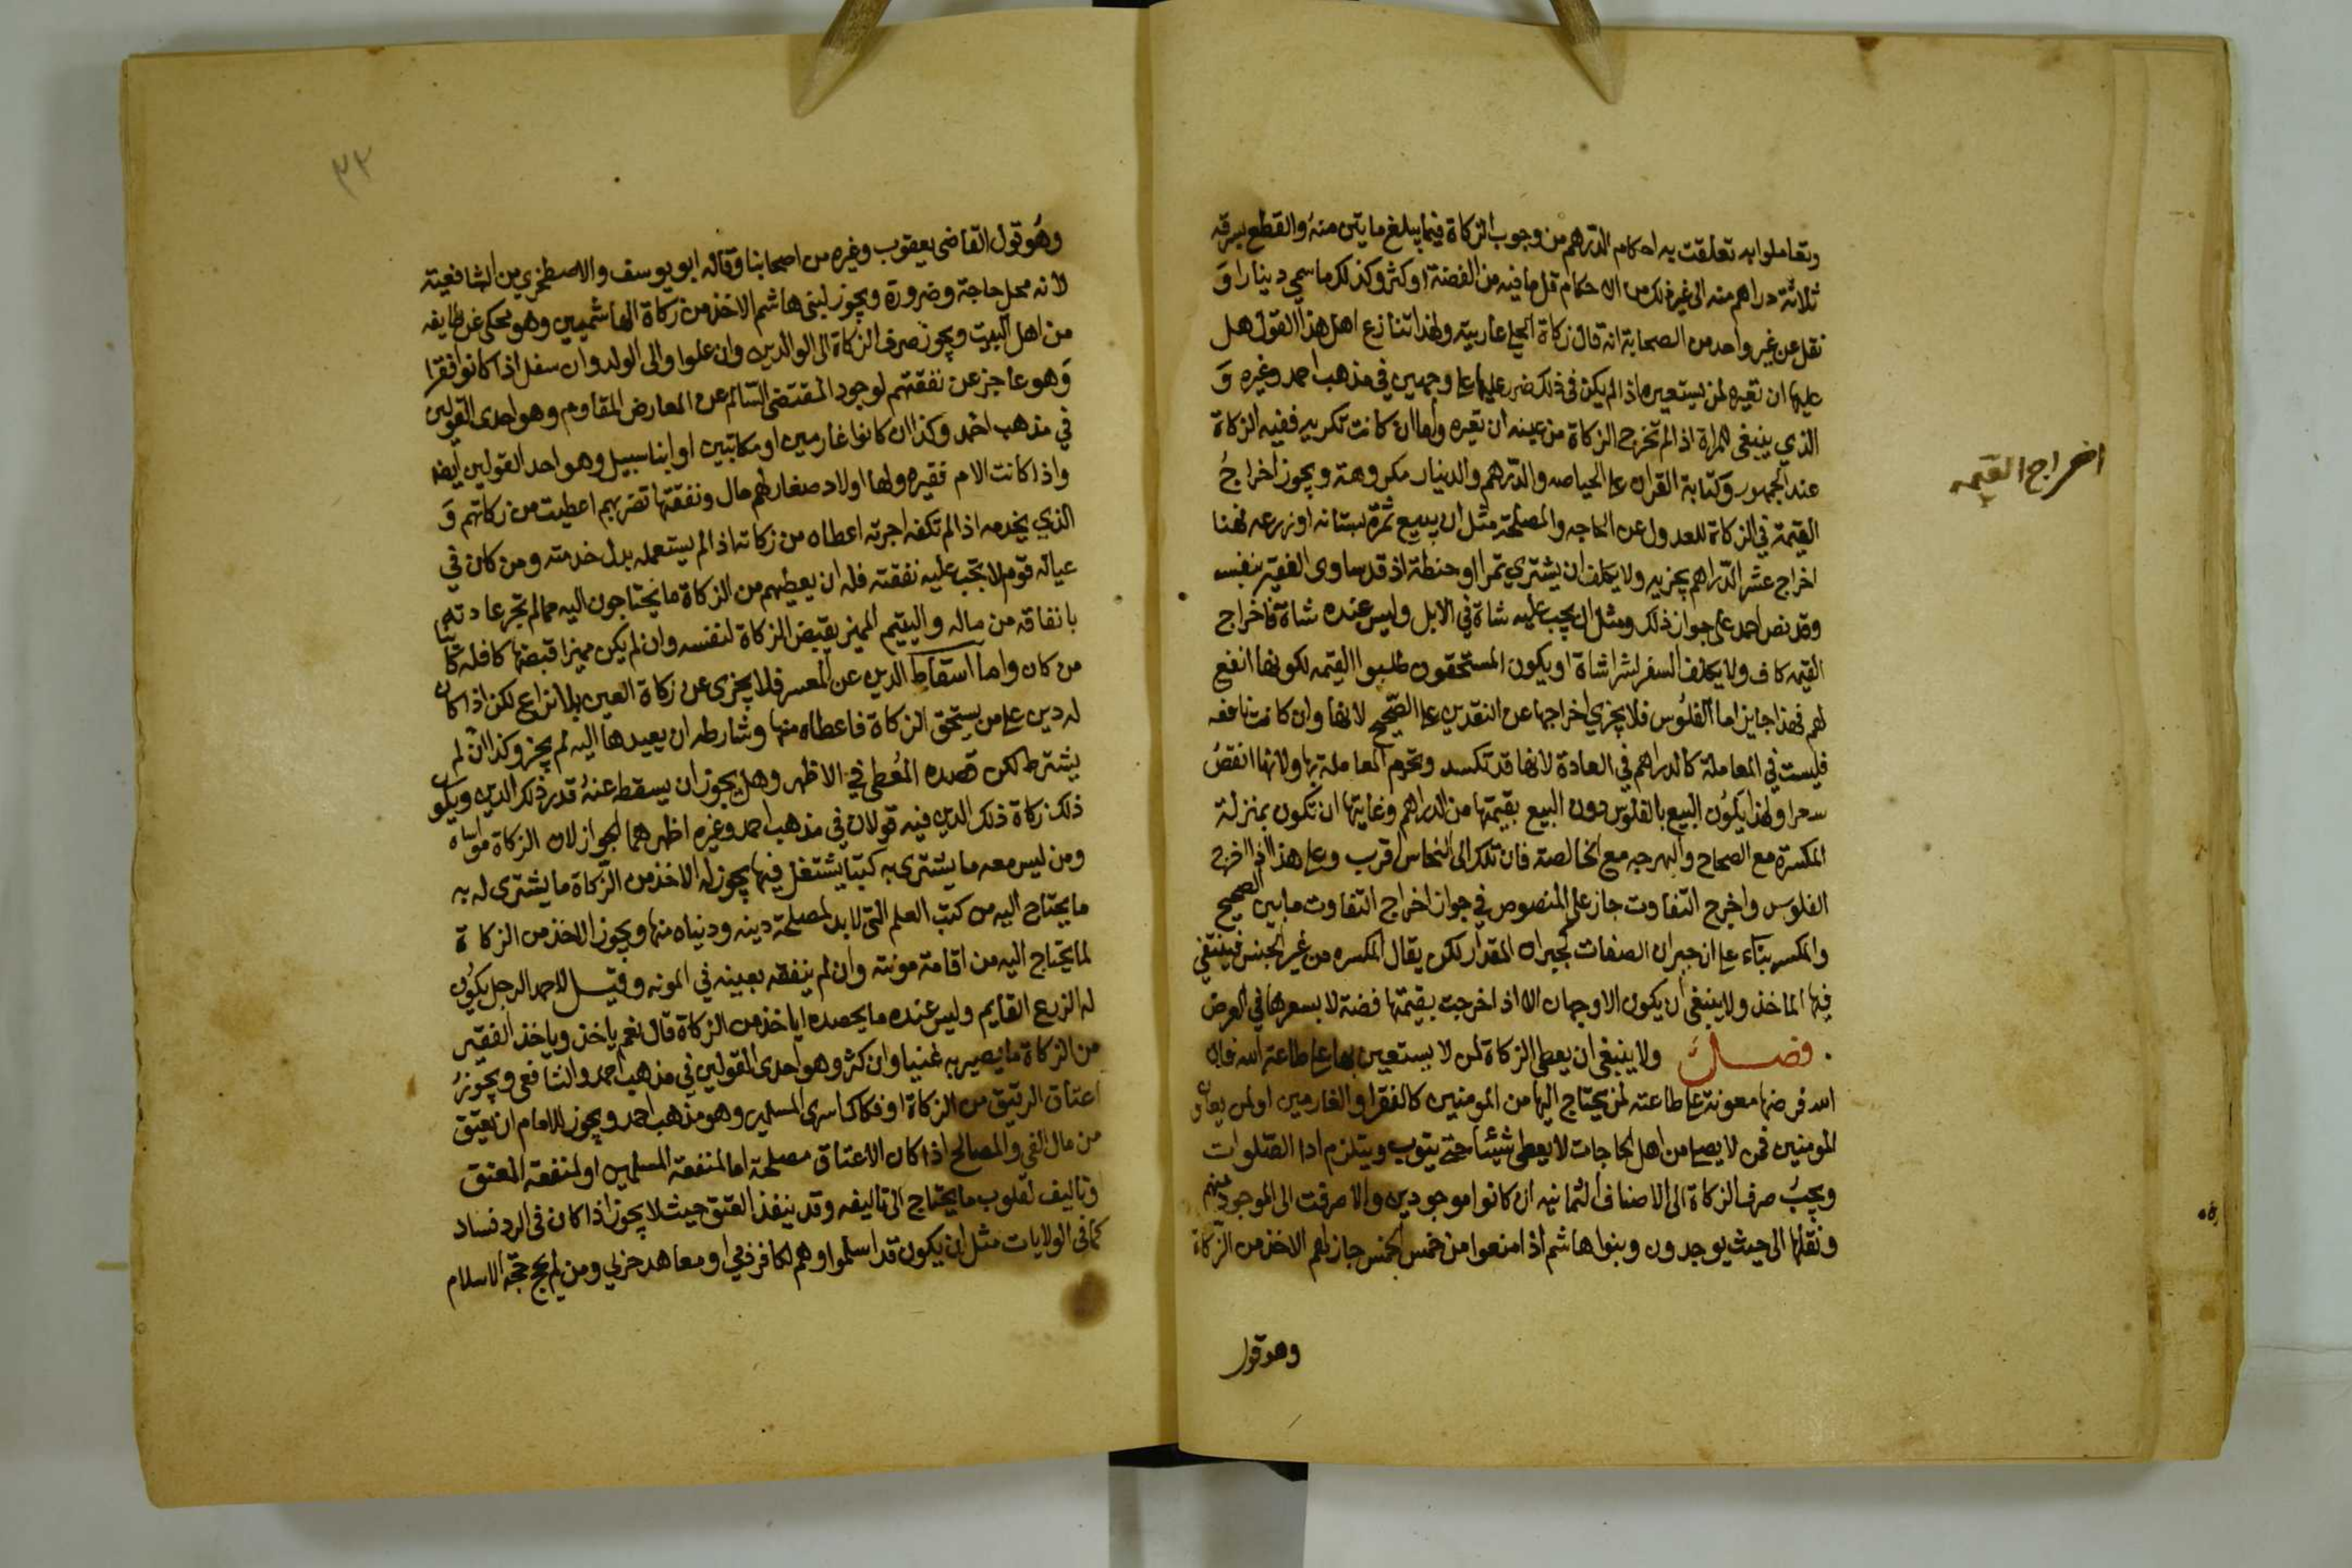 وتعاملوا به تعلقت به احكام الدرهم من وجوب الزكاة فيما يبلغ مايتين منه والقطع بسرقة
ثلاثة دراهم منه الى غير ذلك من الاحكام قل ما فيه من الفضة او كثر وكذلك ما سمي دينارا و
نقل عن غير واحد من الصحابة انه قال زكاة الحلي عاريته ولهذا تنازع اهل هذا القول هل
عليها ان تعيره لمن يستعيره اذا لم يكن في ذلك ضرر عليها على وجهين في مذهب احمد وغيره و
الذي ينبغي للمراة اذا لم تخرج الزكاة من عينه ان تعيره واما ان كانت تكريه ففيه الزكاة
عند الجمهور وكتابة القران على الحياصه والدرهم والدينار مكروهة ويجوز اخراج
اخراج القيمه
القيمة في الزكاة للعدول عن الحاجه والمصلحة مثل ان يبيع ثمرة بستانه او زرعه فهنا
اخراج عشر الدراهم يجزيه ولا يكلف ان يشتري تمرا او حنطة اذ قد ساوى الفقير بنفسه
وقد نص احمد على جواز ذلك ومثل ان يجب عليه شاة في الابل وليس عنده شاة فاخراج
القيمه كاف ولا يكلف السفر لشرا شاة او يكون المستحقون طلبوا القيمه لكونها انفع
لهم فهذا جايز اما الفلوس فلا يجزي اخراجها عن النقدين على الصحيح لانها وان كانت نافقه
فليست في المعاملة كالدراهم في العادة لانها قد تكسد وتحرم المعاملة بها ولانها انقص
سعرا ولهذا يكون البيع بالفلوس دون البيع بقيمتها من الدراهم وغايتها ان تكون بمنزلة
المكسرة مع الصحاح والبهرجه مع الخالصة فان تلك الى النحاس اقرب وعلى هذا اذا اخرج
الفلوس واخرج التفاوت جاز على المنصوص في جواز اخراج التفاوت ما بين الصحيح
والمكسر بناء على ان جبران الصفات كجبران المقدار لكن يقال المكسره من غير الجنس فينتفي
فيها الماخذ ولا ينبغي ان يكون الا وجهان الا اذا اخرجت بقيمتها فضة لا بسعرها في العرض
فصل ولا ينبغي ان يعطى الزكاة لمن لا يستعين بها على طاعة الله فان
الله فرضها معونة على طاعته لمن يحتاج اليها من المومنين كالفقرا والغارمين او لمن يعاون
المومنين فمن لا يصلي من اهل الحاجات لا يعطى شيئا حتى يتوب ويلتزم ادا الصلوات
ويجب صرف الزكاة الى الاصناف الثمانيه ان كانوا موجودين والا صرفت الى الموجود منهم
ونقلها الى حيث يوجدون وبنوا هاشم اذا منعوا من خمس الخمس جاز لهم الاخذ من الزكاة
وهو قول
٣٢
وهو قول القاضي يعقوب وغيره من اصحابنا وقاله ابو يوسف والاصطخري من الشافعية
لانه محل حاجة وضرورة ويجوز لبني هاشم الاخذ من زكاة الهاشميين وهو محكي عن طايفه
من اهل البيت ويجوز صرف الزكاة الى الوالدين وان علوا والى الولد وان سفل اذا كانوا فقرا
وهو عاجز عن نفقتهم لوجود المقتضي السالم عن المعارض المقاوم وهو احدى القولين
في مذهب احمد وكذا ان كانوا غارمين او مكاتبين او ابنا سبيل وهو احد القولين ايضا
واذا كانت الام فقيره ولها اولاد صغار لهم مال ونفقتها تضر بهم اعطيت من زكاتهم و
الذي يخدمه اذا لم تكفه اجرته اعطاه من زكاته اذا لم يستعمله بدل خدمته ومن كان في
عياله قوم لا تجب عليه نفقته فله ان يعطيهم من الزكاة ما يحتاجون اليه مما لم تجر عادته
بانفاقه من ماله واليتيم المميز يقبض الزكاة لنفسه وان لم يكن مميزا قبضها كافله كائنا
من كان واما اسقاط الدين عن المعسر فلا يجزي عن زكاة العين بلا نزاع لكن اذا كان
له دين على من يستحق الزكاة فاعطاه منها وشارطه ان يعيدها اليه لم يجز وكذا ان لم
يشترط لكن قصده المعطي في الاظهر وهل يجوز ان يسقط عنه قدر ذلك الدين ويكون
ذلك زكاة ذلك الدين فيه قولان في مذهب احمد وغيره اظهرهما الجواز لان الزكاة مواساه
ومن ليس معه ما يشتري به كتبا يشتغل فيها يجوز له الاخذ من الزكاة ما يشترى له به
ما يحتاج اليه من كتب العلم التي لا بد لمصلحة دينه ودنياه منها ويجوز الاخذ من الزكاة
لما يحتاج اليه من اقامة مونته وان لم ينفقه بعينه في المونه وقيل لاحمد الرجل يكون
له الزرع القايم وليس عنده ما يحصده اياخذ من الزكاة قال نعم ياخذ وياخذ الفقير
من الزكاة ما يصير به غنيا وان كثر وهو احدى القولين في مذهب احمد والشافعي ويجوز
اعتاق الرقيق من الزكاة او فكاك اسرى المسلمين وهو مذهب احمد ويجوز للامام ان يعتق
من مال الفي والمصالح اذا كان الاعتاق مصلحة اما لمنفعة المسلمين او لمنفعة المعتق
وتاليف لقلوب ما يحتاج الى تاليفه وقد ينفذ العتق حيث لا يجوز اذا كان في الرد فساد
كما في الولايات مثل ان يكون قد اسلموا وهم لكافر ذمي او معاهد حربي ومن لم يحج حجة الاسلام